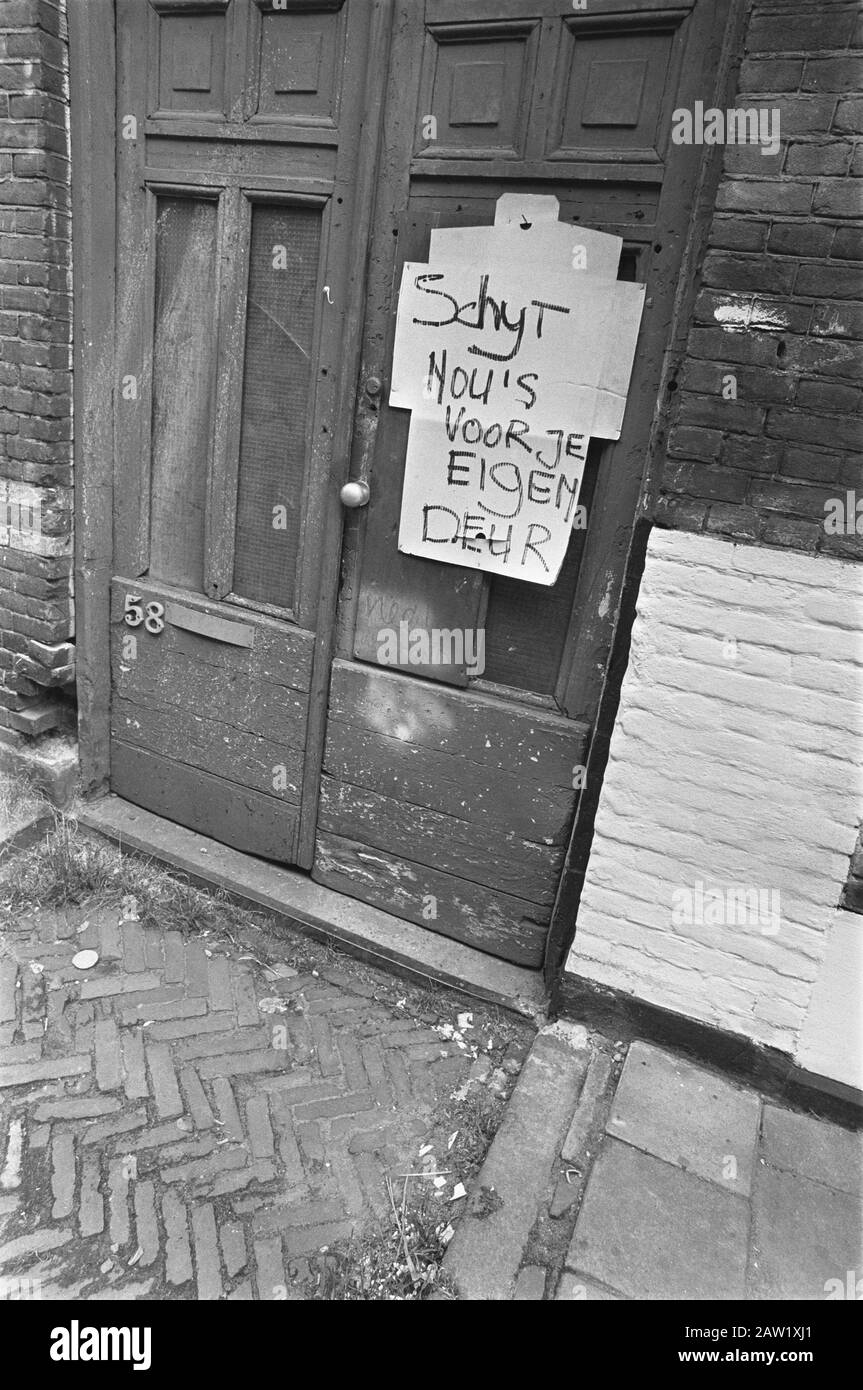 Schyt
NOU'S
VOOR JE
EIgEN
DEUR
58
a
alamy
Image ID: 2AW1XJ1
www.alamy.com